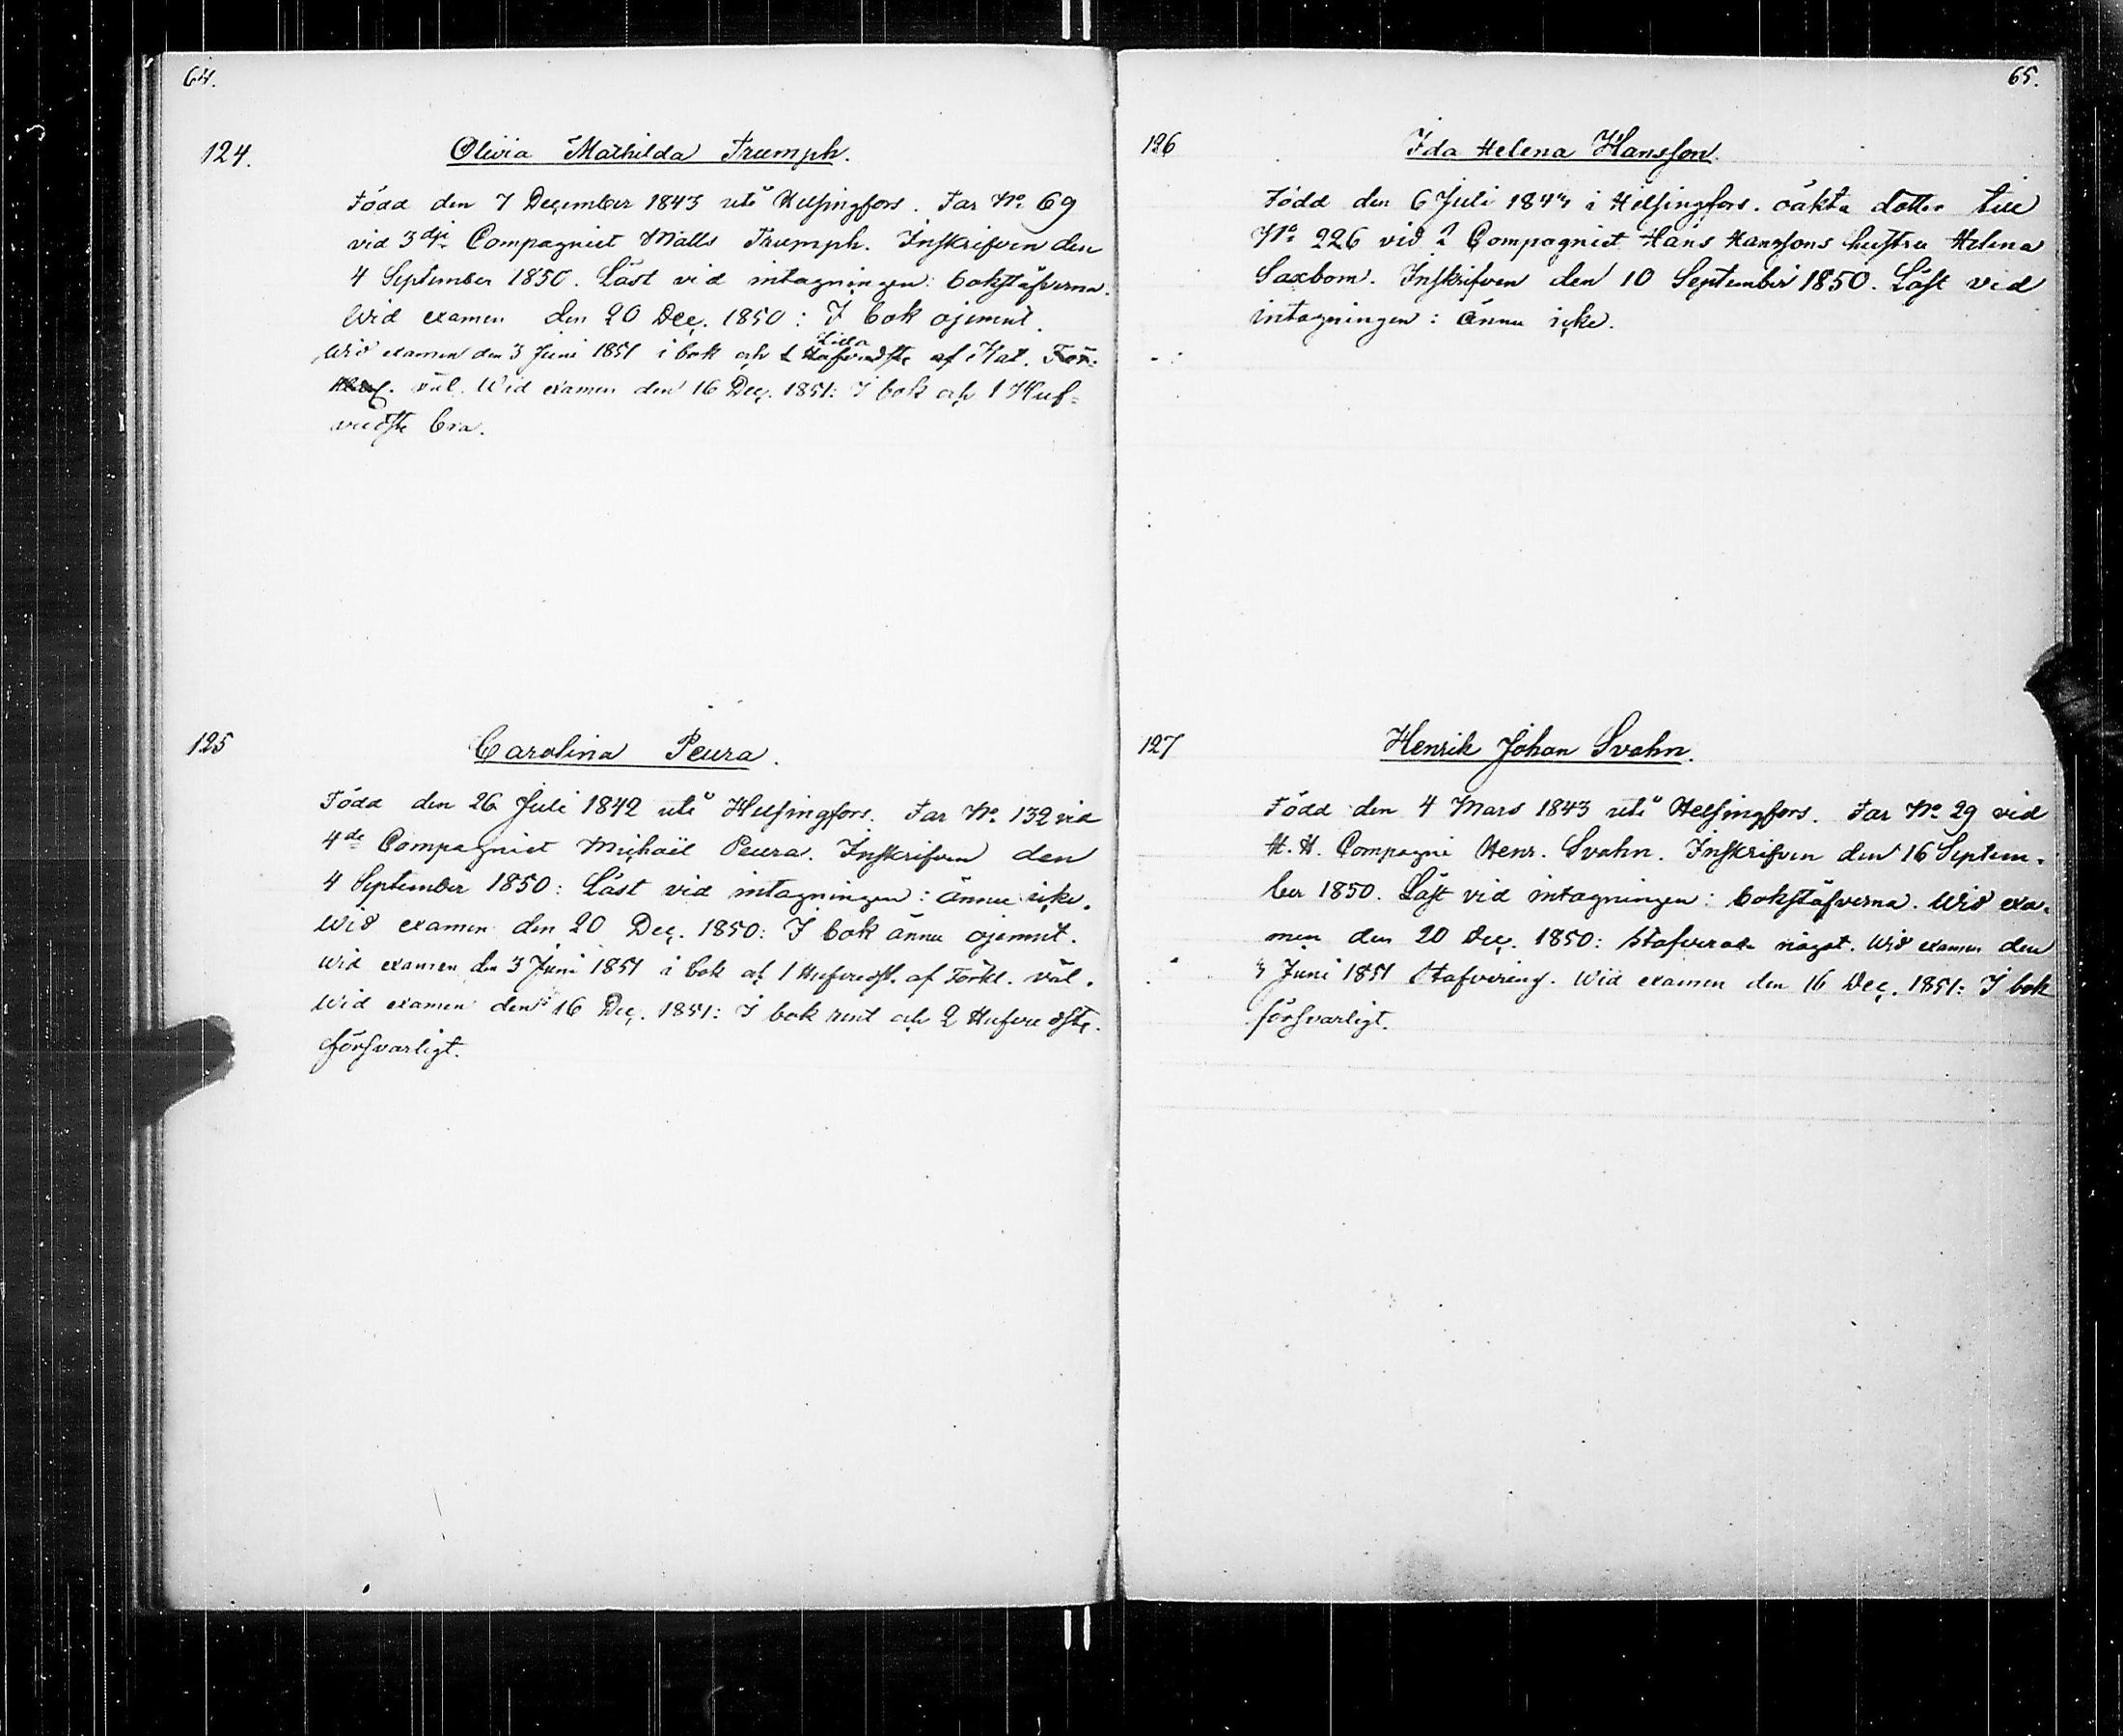 64.
124.
Olivia Mathilda Trumph.
Född den 7 December 1843 uti Helsingfors. Far No. 69
vid 3dje Compagniet Matts Trumph. Inskrifven den
4 September 1850. Läst vid intagningen: bokstäfverna.
Wid examen den 20 Dec. 1850: I bok ojemnt.
Lilla
Wid examen den 3 Juni 1851 i bok och af Kat. För=
väl. Wid examen den 16 Dec. 1851: I bok och 1 Huf=
vudste bra.
125
Carolina Peura.
Född den 26 Juli 1842 uti Helsingfors. Far No. 132 vid
4de Compagniet Michaël Peura. Inskrifven den
4 September 1850: Läst vid intagningen: ännu icke.
Wid examen den 20 Dec. 1850: I bok ännu ojemnt.
Wid examen den 3 Juni 1851 i bok och 1 Hufvudst. af Förkl. väl.
Wid examen den 16 Dec. 1851: I bok rent och 2 Hufvudste.
försvarligt.
65.
126
Ida Helena Hansson.
Född den 6 Juli 1844 i Helsingfors. oäkta dotter till
No 226 vid 2 Compagniet Hans Hanssons hustru Helena
Saxbom. Inskrifven den 10 September 1850. Läst vid
intagningen: ännu icke.
127
Henrik Johan Svahn.
Född den 4 Mars 1843 uti Helsingfors. Far No. 29 vid
H. H. Compagni Henr. Svahn. Inskrifven den 16 Septem-
ber 1850. Läst vid intagningen: bokstäfverna. Wid exa-
men den 20 Dec. 1850: stafverat något. Wid examen den
3 Juni 1851 Stafvering. Wid examen den 16 Dec. 1851: I bok
försvarligt.